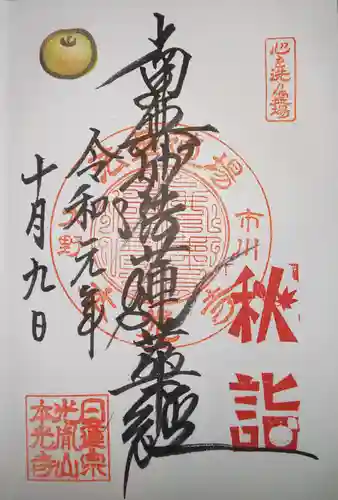 秋詣
南無妙法蓮華経
令和元年
十月九日
市川
日蓮宗
光胤山
本光寺